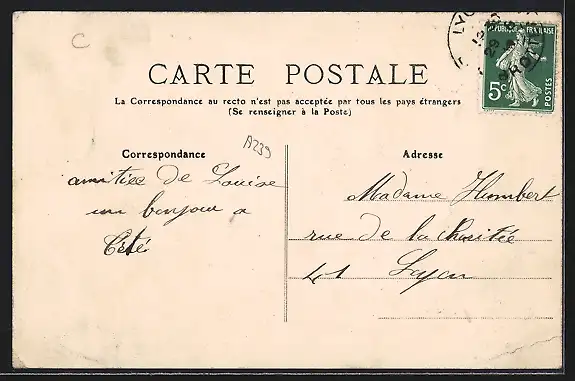 C
LYO
RÉPUBLIQUE FRANÇAISE
5c
POSTES
CARTE POSTALE
La Correspondance au recto n'est pas acceptée par tous les pays étrangers
(Se renseigner à la Poste)
A239
Correspondance
amitiée de Louise
un bonjour a
Adresse
Madame Humbert
rue de la Charitée
41 Lyon